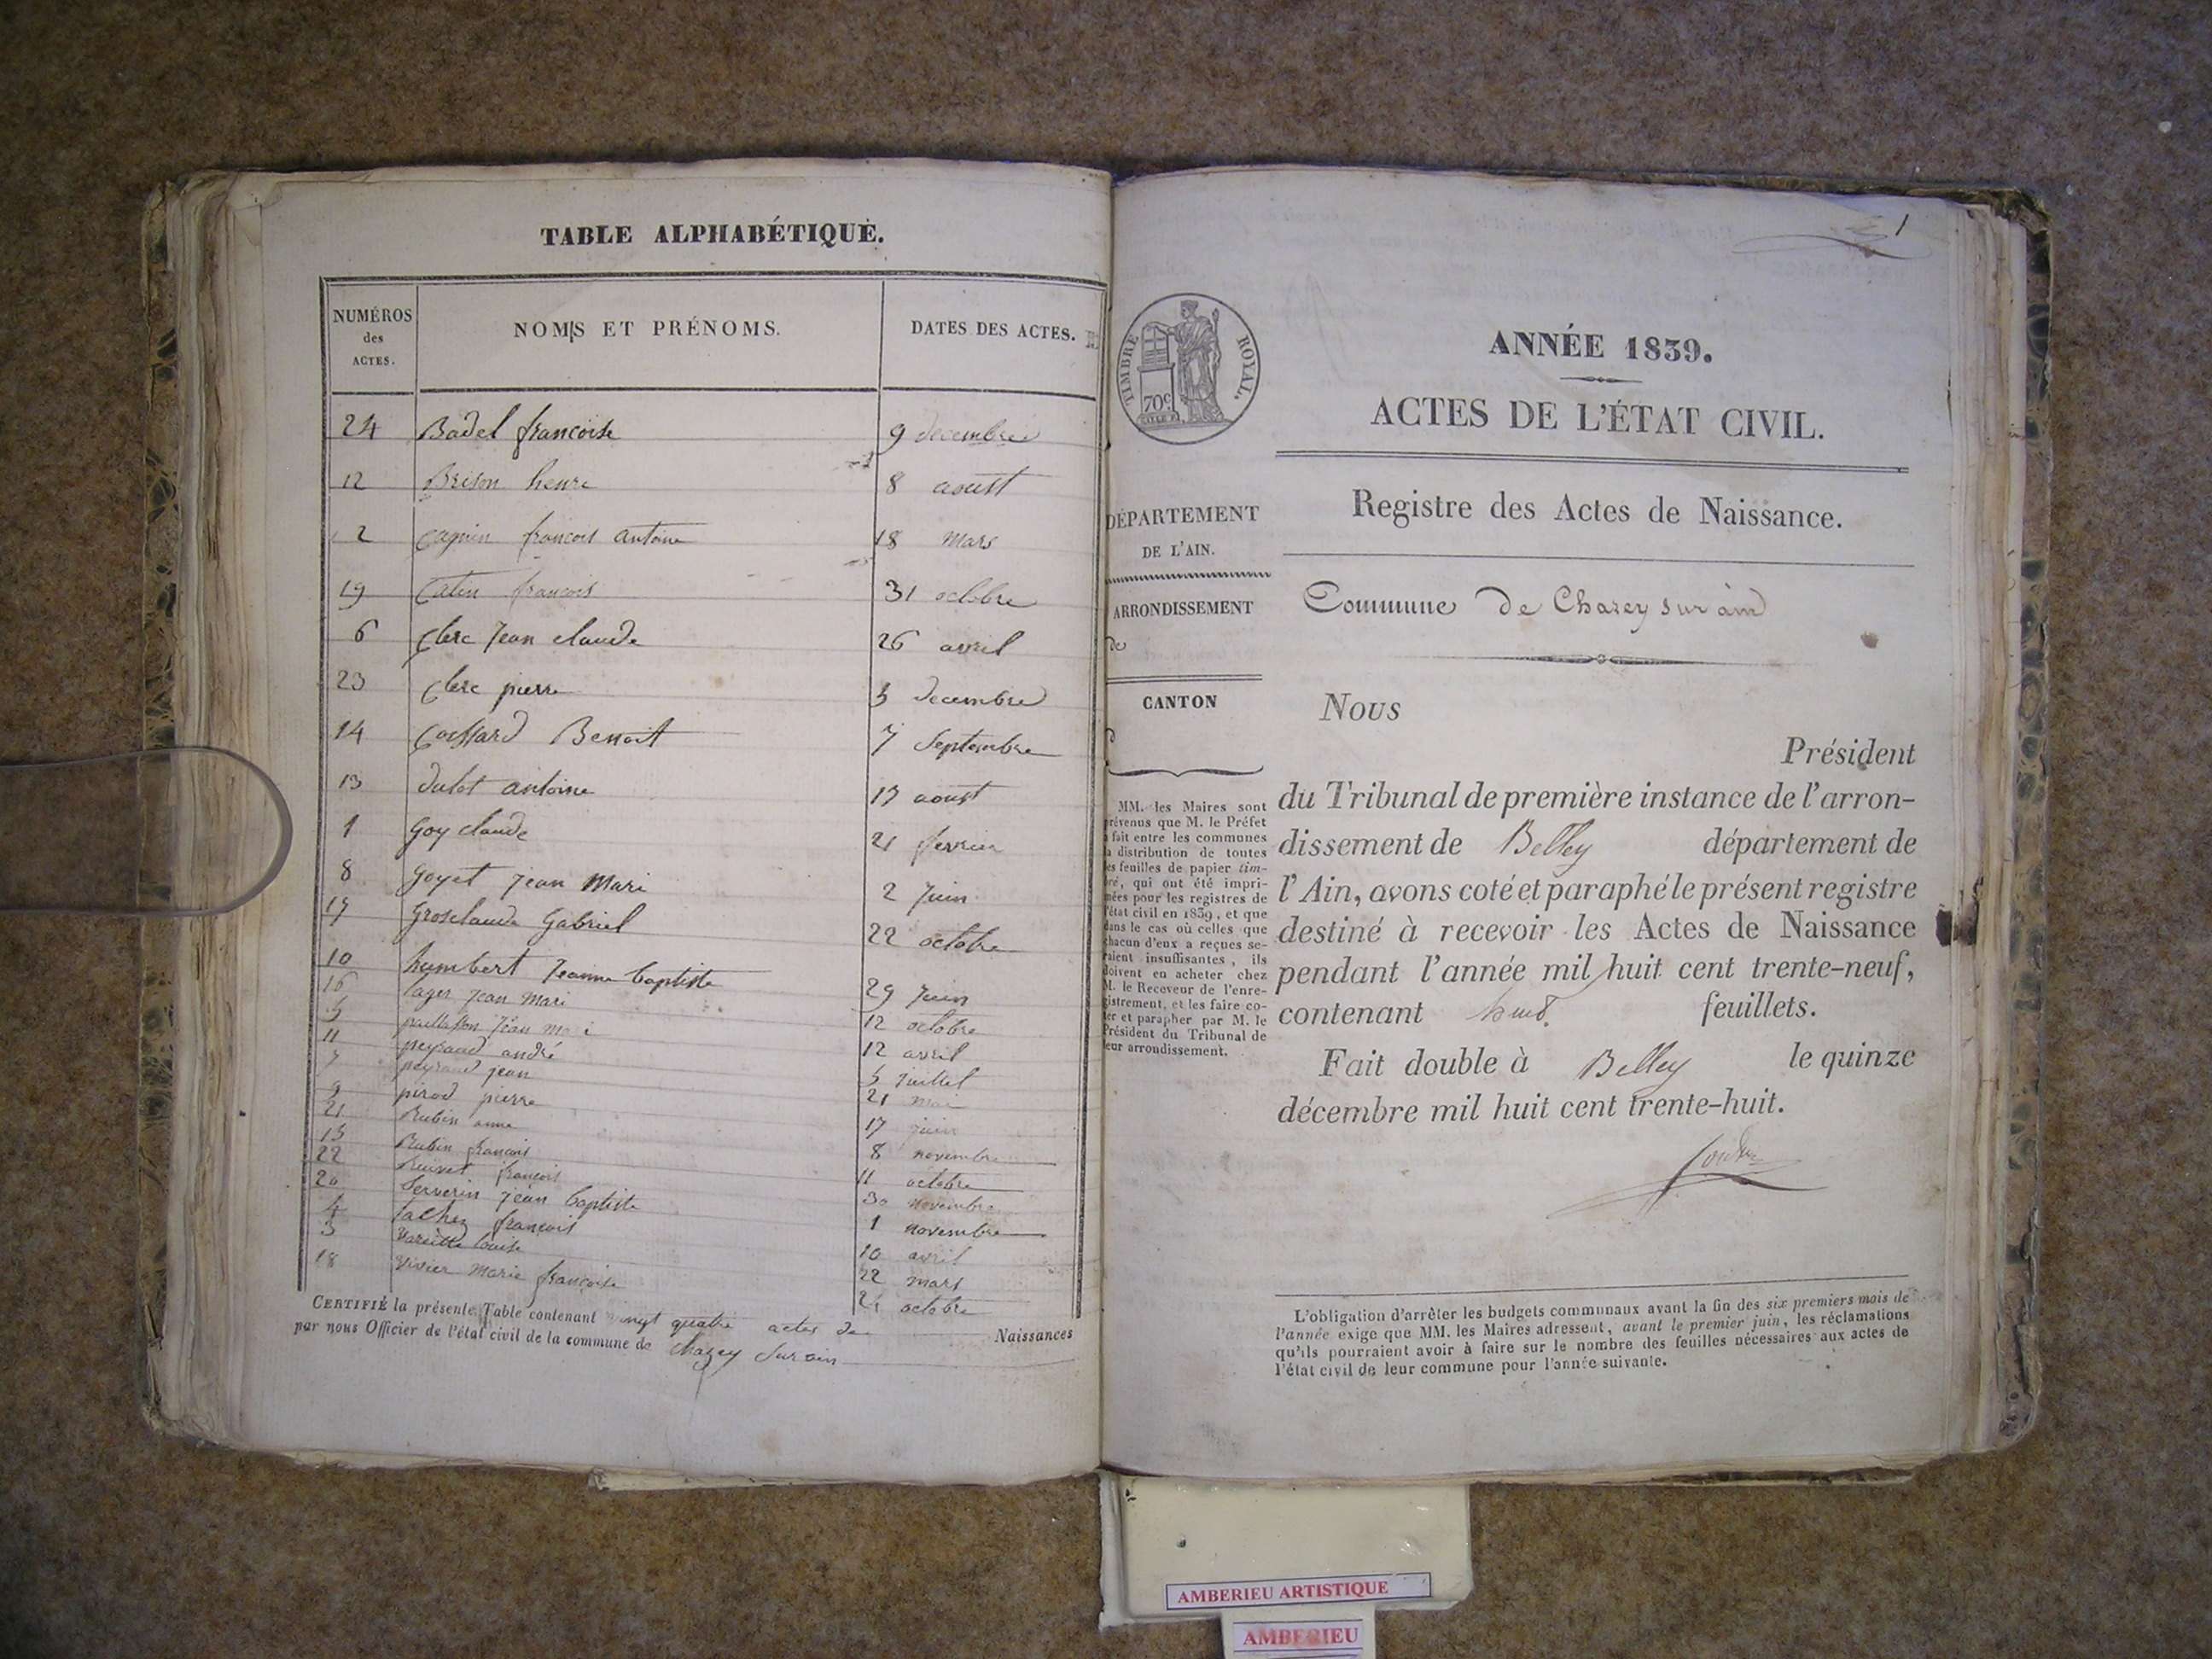 TABLE ALPHABÉTIQUE.
NUMÉROS des ACTES. NOMS ET PRÉNOMS. DATES DES ACTES.
24 Badel francoise 9 decembre
12 Brison henri 8 aoust
2 Cagnin francois antoine 18 mars
19 Catin francois 31 octobre
6 Clerc Jean claude 26 avril
23 Clerc pierre 5 decembre
14 Coissard Benoit 7 Septembre
13 dulot antoine 17 aoust
1 Goy claude 21 fevrier
8 Goyet Jean Mari 2 Juin
17 Grosclaude Gabriel 22 octobre
10 humbert Jeanne baptiste 29 Juin
16 lager Jean Mari 12 octobre
5 Jean mari 12 avril
11 peyraud andré 5 Juillet
7 peyraud jean 21 mai
9 pirod pierre 17 juin
21 Rubin anne 8 novembre
15 Rubin françois 11 octobre
22 françois 30 novembre
20 Serverin jean baptiste 1 novembre
4 tachez françois 10 avril
3 louise 22 mars
18 vivier marie françoise 21 octobre
CERTIFIÉ la présente Table contenant vingt quatre actes de Naissances
par nous Officier de l'état civil de la commune de Chazey Sur ain
1
TIMBRE ROYAL.
70c
ANNÉE 1839.
ACTES DE L'ÉTAT CIVIL.
Registre des Actes de Naissance.
DÉPARTEMENT
DE L'AIN.
ARRONDISSEMENT
de
CANTON
d
MM. les Maires sont
prévenus que M. le Préfet
a fait entre les communes
la distribution de toutes
les feuilles de papier tim-
bré, qui ont été impri-
mées pour les registres de
l'état civil en 1839, et que
dans le cas où celles que
chacun d'eux a reçues se-
raient insuffisantes, ils
doivent en acheter chez
M. le Receveur de l'enre-
gistrement, et les faire co-
ter et parapher par M. le
Président du Tribunal de
leur arrondissement.
Commune de Chazey sur ain
Nous
Président
du Tribunal de première instance de l'arron-
dissement de Belley département de
l'Ain, avons coté et paraphé le présent registre
destiné à recevoir les Actes de Naissance
pendant l'année mil huit cent trente-neuf,
contenant huit feuillets.
Fait double à Belley le quinze
décembre mil huit cent trente-huit.
L'obligation d'arrêter les budgets communaux avant la fin des six premiers mois de
l'année exige que MM. les Maires adressent, avant le premier juin, les réclamations
qu'ils pourraient avoir à faire sur le nombre des feuilles nécessaires aux actes de
l'état civil de leur commune pour l'année suivante.
AMBERIEU ARTISTIQUE
AMBERIEU